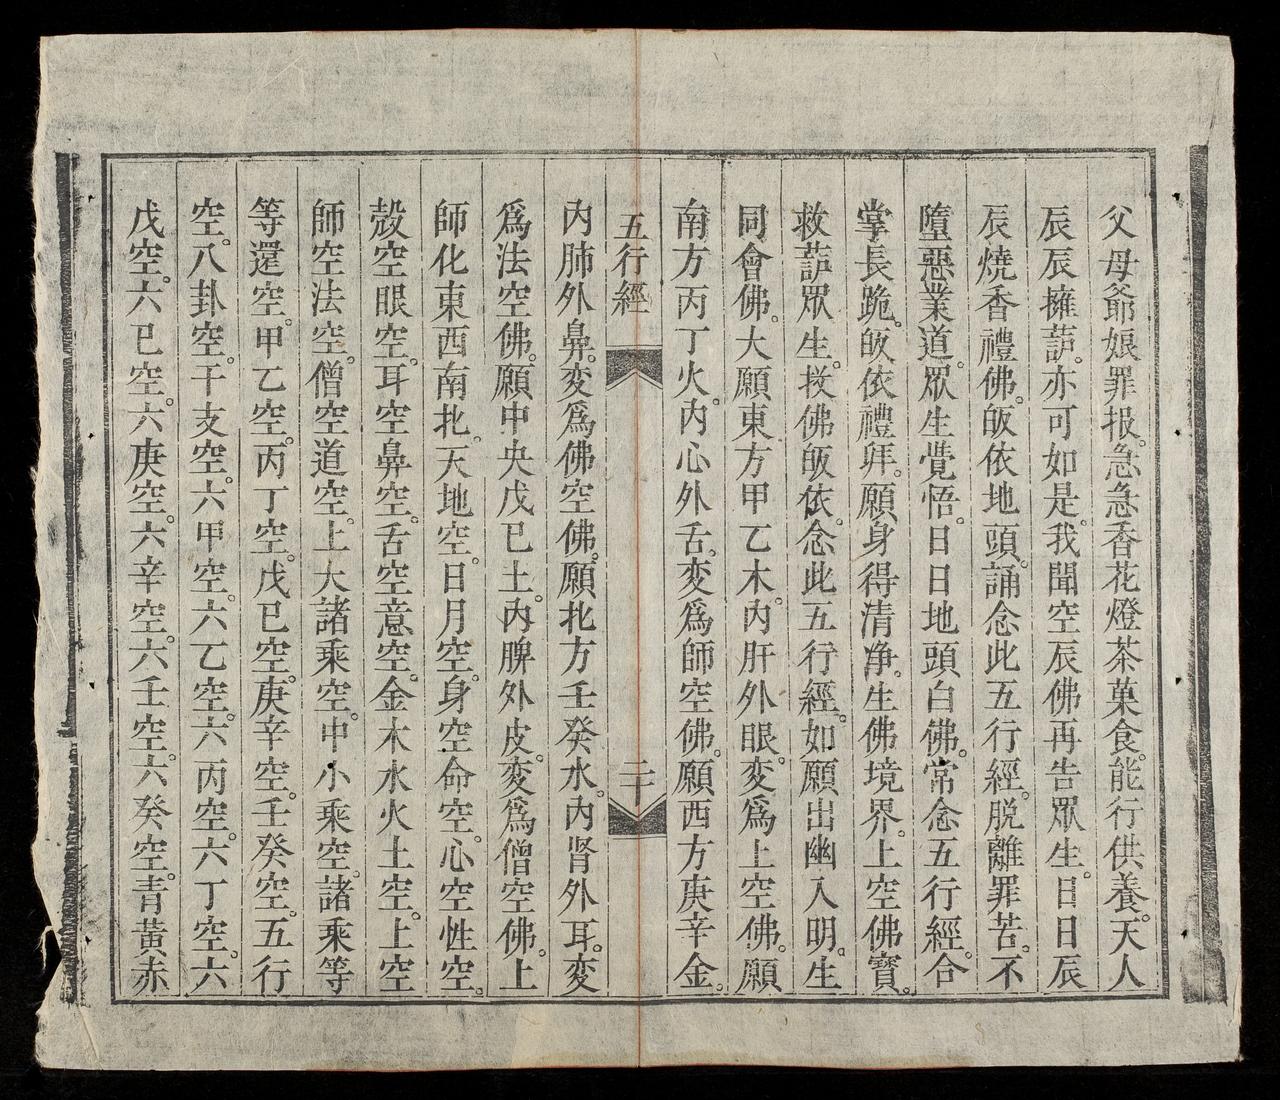 父母爺娘罪报。急急香花燈茶菓食。能行供養。天人
辰辰擁䕶。亦可如是。我聞空辰佛再告眾生。日日辰
辰燒香禮佛。皈依地頭。誦念此五行經。脱離罪苦。不
墮惡業道。眾生覺悟。日日地頭白佛。常念五行經。合
掌長跪。皈依禮拜。願身得清凈。生佛境界。上空佛寶。
救䕶眾生。拔佛皈依。念此五行經。如願出幽入明。生
同會佛。大願東方甲乙木。内肝外眼。変爲上空佛。願
南方丙丁火。内心外舌。変爲師空佛。願西方庚辛金。
五行經 二十
内肺外鼻。変爲佛空佛。願北方壬癸水。内肾外耳。変
爲法空佛。願中央戊巳土。内脾外皮。変爲僧空佛。上
師化東西南北。天地空。日月空。身空命空。心空性空。
殻空眼空。耳空鼻空。舌空意空。金木水火土空。上空
師空法空。僧空道空。上大諸乘空。中小乘空。諸乘等
等還空。甲乙空。丙丁空。戊巳空。庚辛空。壬癸空。五行
空。八卦空。干支空。六甲空。六乙空。六丙空。六丁空。六
戊空。六巳空。六庚空。六辛空。六壬空。六癸空。青黃赤